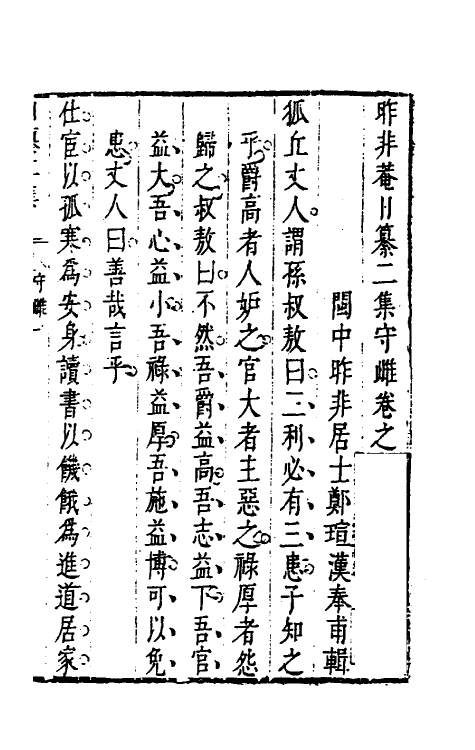 昨非菴日纂二集守雌卷之
閩中昨非居士鄭瑄漢奉甫輯
狐丘丈人謂孫叔敖曰三利必有三患子知之
乎爵高者人妒之官大者主惡之祿厚者怨
歸之叔敖曰不然吾爵益高吾志益下吾官
益大吾心益小吾祿益厚吾施益博可以免
患丈人曰善哉言乎
仕宦以孤寒為安身讀書以饑餓為進道居家